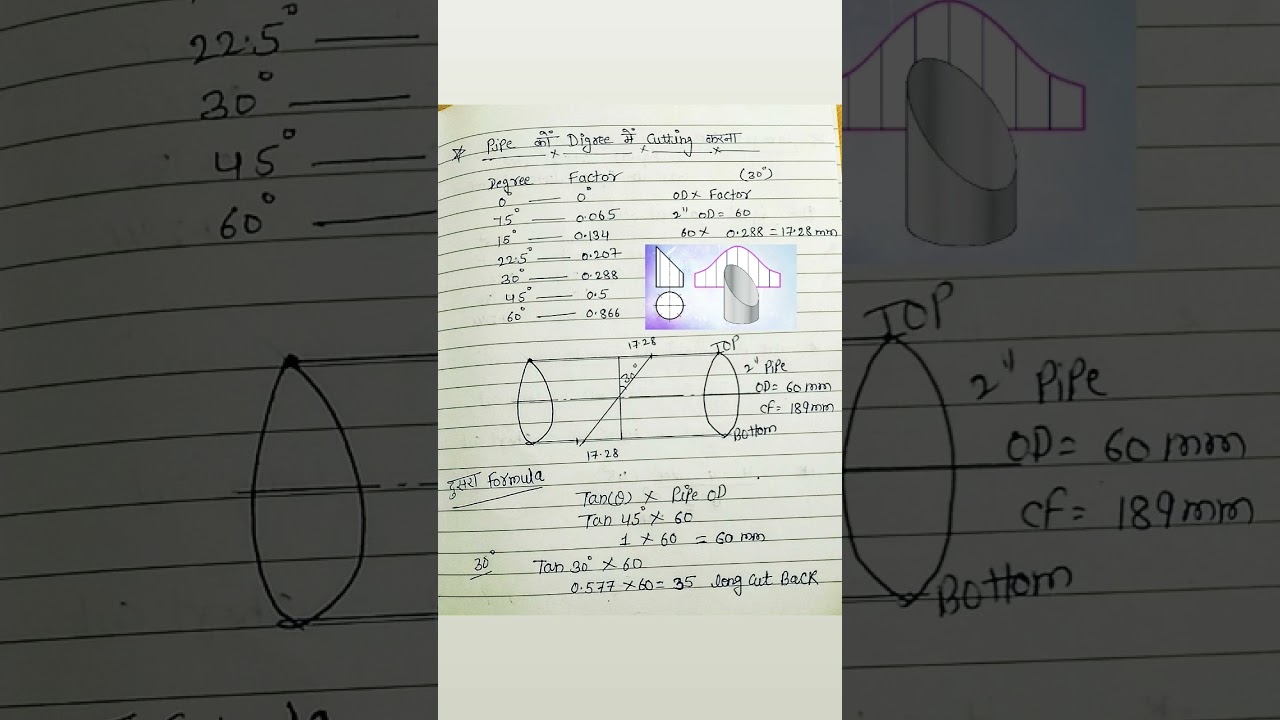 22.5° ——
30° ——
45° ——
60° ——
Pipe को Digree में Cutting करना
Degree Factor (30°)
0° —— 0° OD x Factor
75° —— 0.065 2" OD = 60
15° —— 0.134 60 x 0.288 = 17.28 mm
22.5° —— 0.207
30° —— 0.288
45° —— 0.5
60° —— 0.866
17.28
TOP
30°
2" PiPe
OD = 60 mm
CF = 189 mm
Bottom
17.28
दुसरा Formula
Tan(θ) x Pipe OD
Tan 45° x 60
1 x 60 = 60 mm
30° Tan 30° x 60
0.577 x 60 = 35 long cut Back
TOP
2" PiPe
OD = 60 mm
CF = 189 mm
Bottom